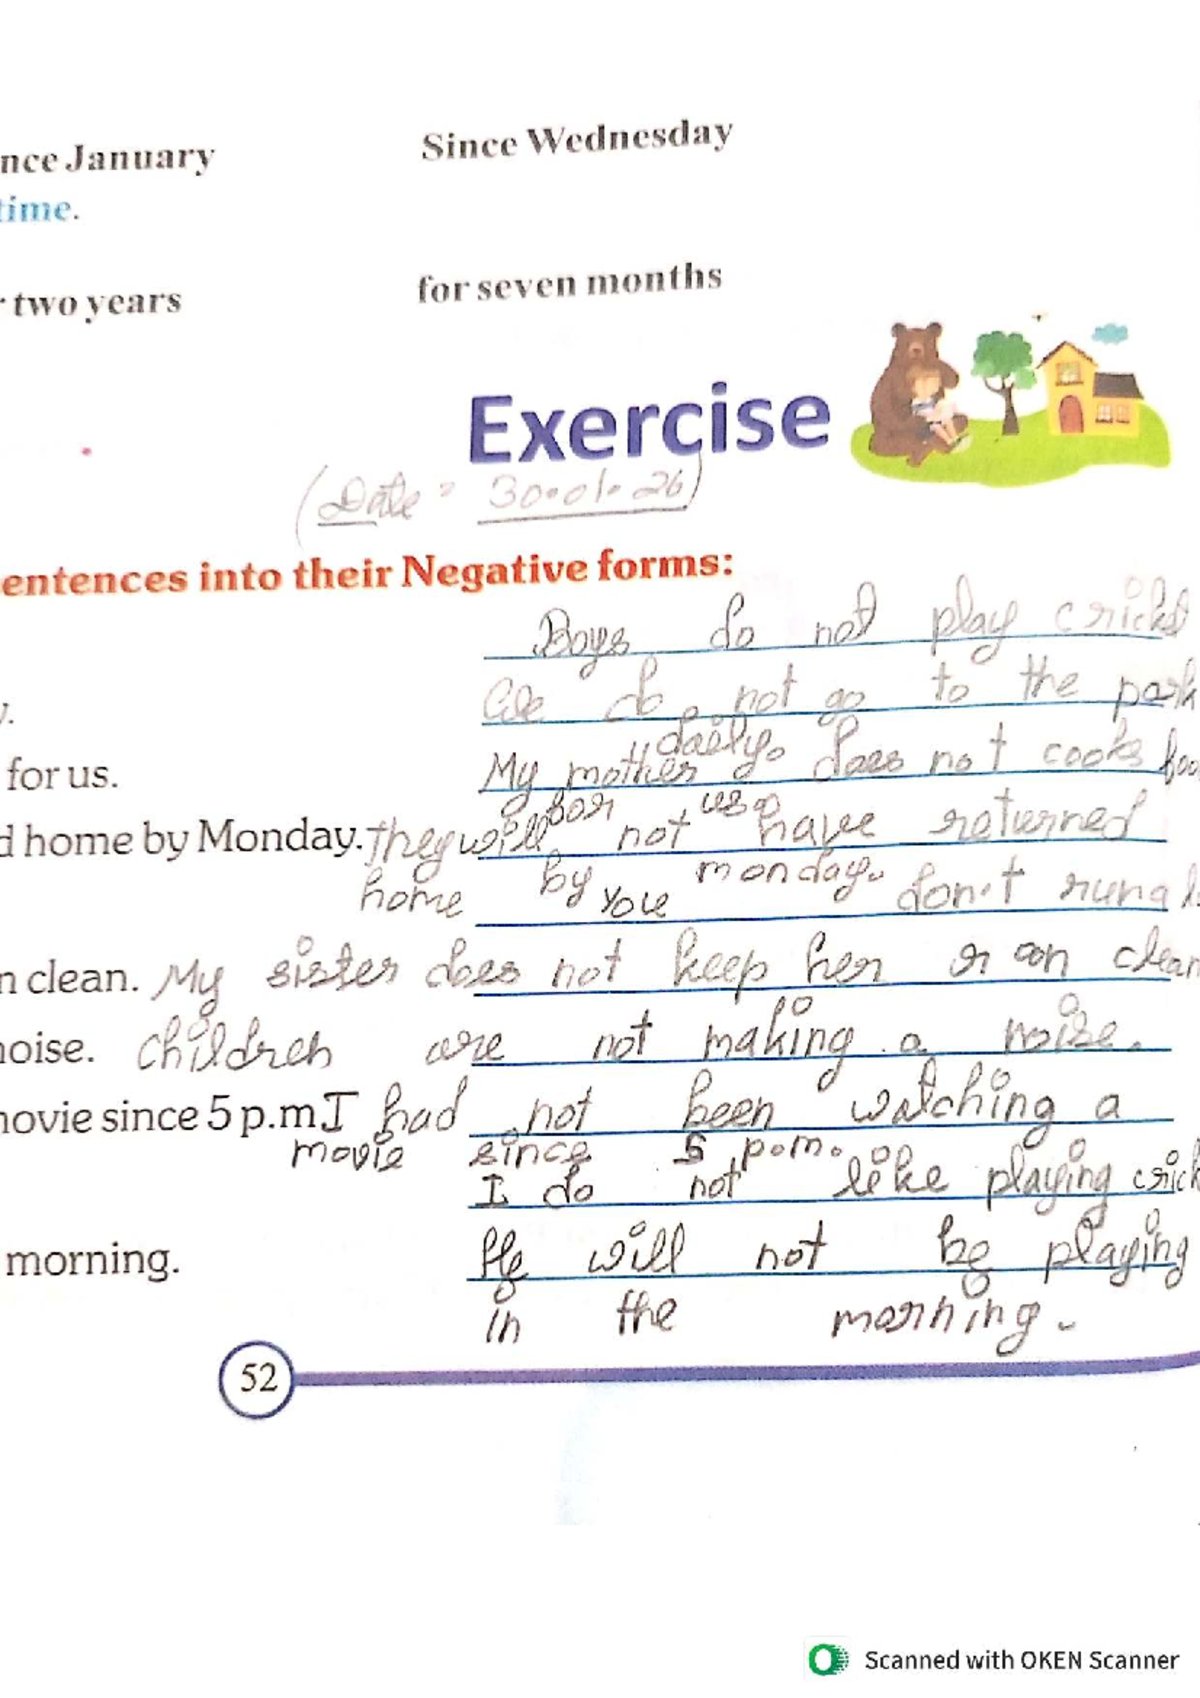 nce January Since Wednesday
time.
two years for seven months
Exercise
(Date = 30.01.26)
entences into their Negative forms:
Boys do not play cricket
We do not go to the park
y.
daily.
for us. My mother does not cooks foo
for us.
d home by Monday. They will not have returned
home by monday.
You don't rung
n clean. My sister does not keep her room clean
noise. Children are not making a noise.
movie since 5 p.m I had not been watching a
movie since 5 p.m.
I do not like playing crick
morning. He will not be playing
in the morning.
52
Scanned with OKEN Scanner